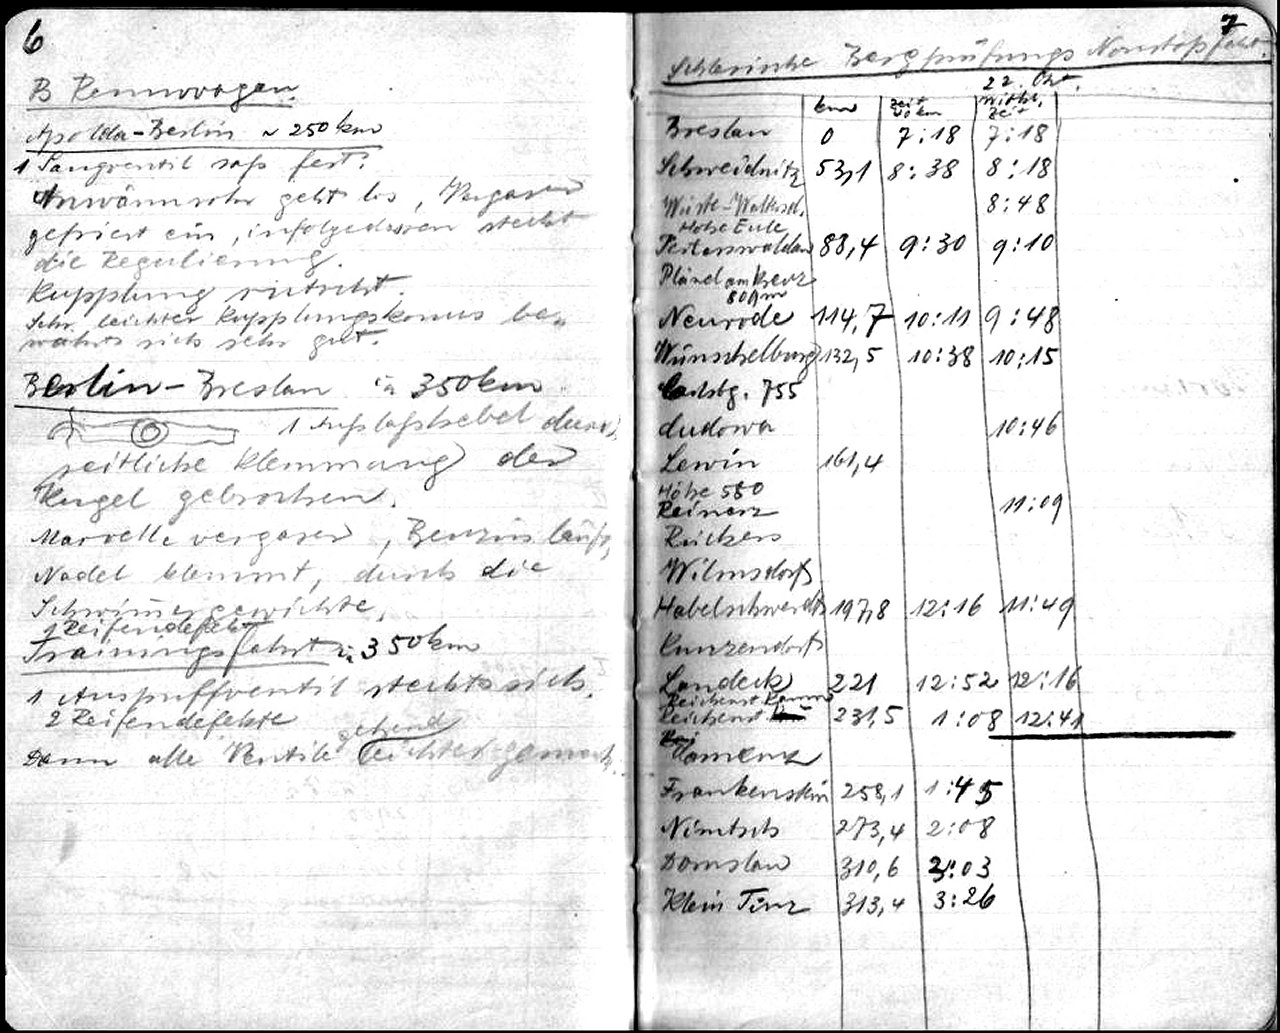 6
B Rennwagen.
Apolda-Berlin ~ 250 km
1 Saugventil saß fest.
Anwärmrohr geht los, Vergaser
gefriert ein, infolgedessen steckt
die Regulierung.
Kupplung rutscht.
Sehr leichter Kupplungskonus be-
währt sich sehr gut.
Berlin-Breslau 350 km
1 hebel durch
seitliche Klemmung der
Kugel gebrochen.
vergaser, Benzin läuft,
Nadel klemmt, durch die
Schwimmergewichte,
1 Reifendefekt
Trainingsfahrt 350 km
1 Auspuffventil steckt sich.
2 Reifendefekte
gehend
Dann alle Ventile leichter gemacht.
7
Schlesische Bergprüfungs Nonstopfahrt.
22. Okt.
km Zeit 40 km Wirkl. Zeit
Breslau 0 7:18 7:18
Schweidnitz 53,1 8:38 8:18
Wüste-Waltersd. 8:48
Hohe Eule
Peterswaldau 88,4 9:30 9:10
Plänel am Kreuz
809m
Neurode 114,7 10:11 9:48
Wünschelburg 132,5 10:38 10:15
Carlsbg. 755
Cudowa 10:46
Lewin 161,4
Höhe 580
Reinerz 11:09
Rückers
Wilmsdorf
Habelschwerdt 197,8 12:16 11:49
Kunzendorf
Landeck 221 12:52 12:16
Reichenst Kamm
Reichenst 231,5 1:08 12:41
Camenz
Frankenstein 258,1 1:45
Nimtsch 273,4 2:08
Domslau 310,6 3:03
Klein Tinz 313,4 3:26